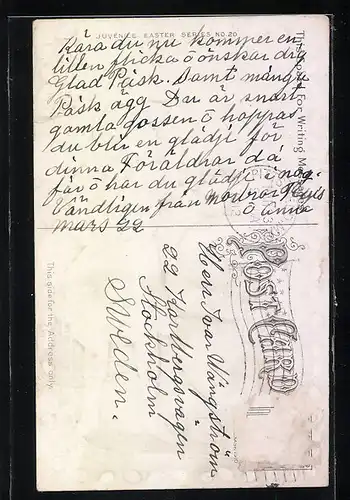 JUVENILE EASTER SERIES NO. 20
Kära du nu kommer en
liten flicka o önskar dig
Glad Påsk. Samt många
Påsk ägg Du är snart
gamla gossen o hoppas
du blir en glädje för
dinna Föräldrar då
får o har du glädje i nog.
Vändligen från morbror
o Anna
mars 22
This Space For Writing
POST CARD
Herr Ivar Vångström
22 Karlbergsvägen
Stockholm
Sweden.
This side for the Address only.